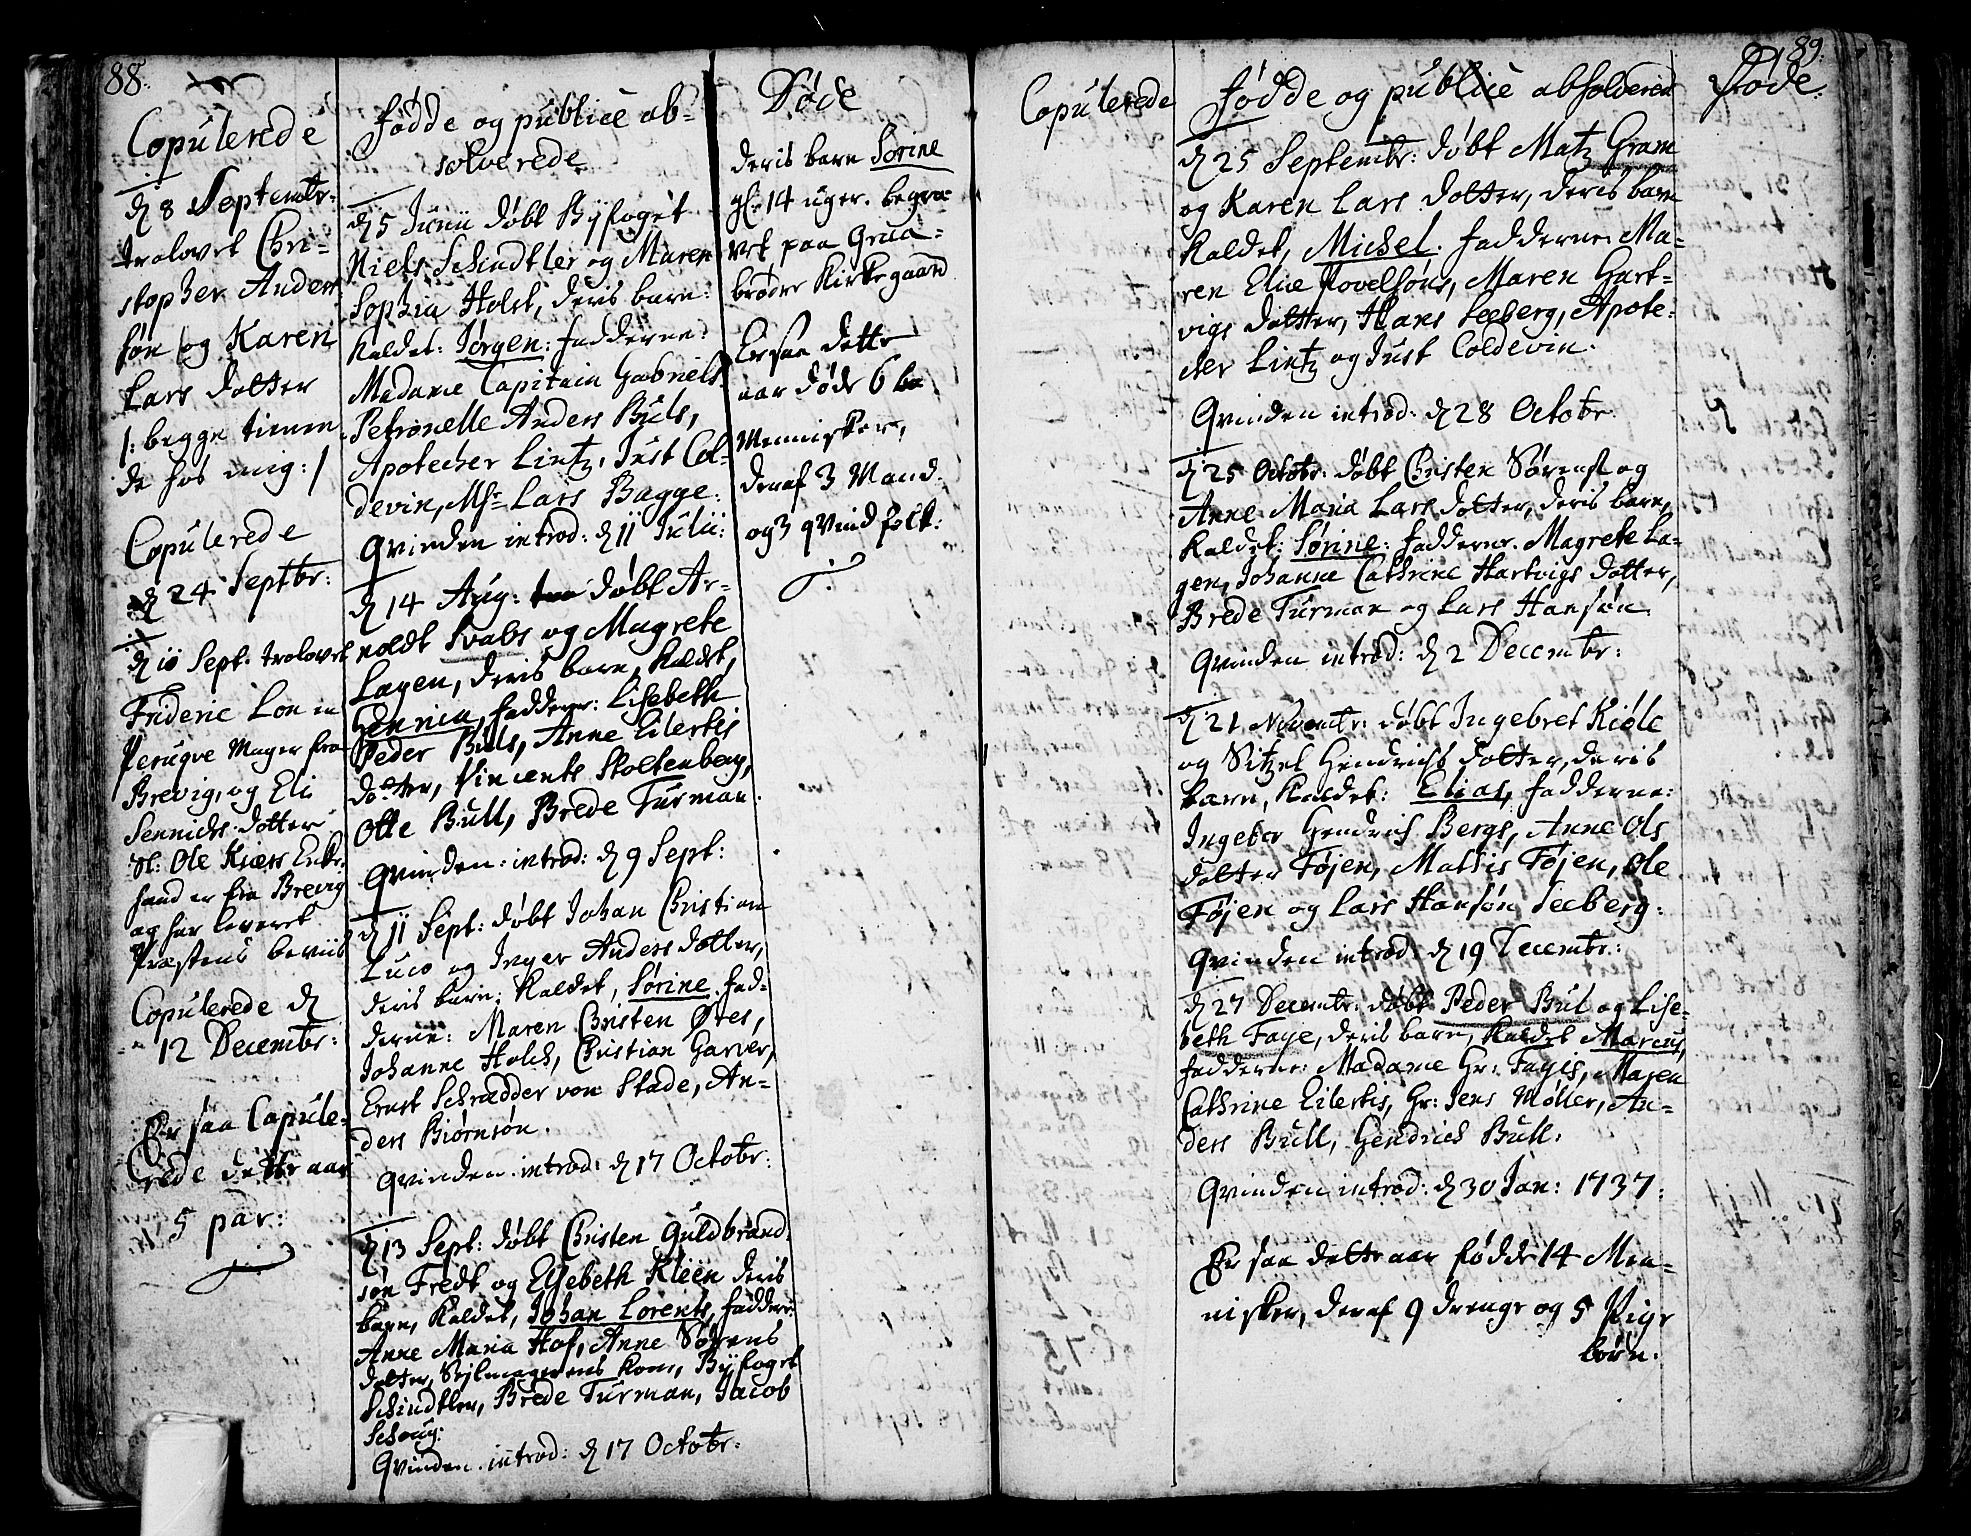 88.
Copulerede
d 8 Septembr:
trolovet Chri-
stopher Anders
søn og Karen
Lars dotter
/: begge tienen
de hos mig: /
Copulerede
d 24 Septbr:
d 10 Sept: trolovet
Frideric Lon en
Peruqve Mager fra
Brevig, og Eli
Sennichs dotter
Sl: Ole Kiærs Enke,
hand er fra Brevig
og har leveret
Præstens beviis
Copulerede d
12 Decembr:
Er saa Copule-
rede dette aar
5 par:
fødde og publice ab-
solverede
d 5 Junii døbt Byfoget
Niels Schindtler og Maren
Sophia Holst, deris barn:
kaldet: Jørgen: fadderne:
Madame Capitain Gabriels
Petronelle Anders Buls,
Apotecher Lintz, Just Col-
devin, Msr Lars Bagge:
Qvinden introd: d 11 Julii:
d 14 Aug: døbt Ar-
noldt Svabs og Magrete
Lagen, deris barn, kaldet,
Henrica, fadderne: Lisebeth
Peder Buls, Anne Eilertis
dotter, Vincents Stoltenberg,
Otte Bull, Brede Turman.
Qvinden: introd: d 9 Sept:
d 11 Sept: døbt Johan Christian
Luco og Inger Anders dotter,
deris barn: kaldet, Sørine. fad-
derne: Maren Christen Øres,
Johanne Holch, Christian Garver,
Ernst Schrædder von Stade, An-
ders Biørnsøn.
Qvinden: introd: d 17 Octobr:
d 13 Sept: døbt Christen Guldbrand-
søn Fredt og Elsebeth Kleen deris
barn, kaldet, Johan Lorents, faddere:
Anne Maria Hof, Anne Sørens
dotter, Sejlmagerens kone, Byfoget
Schindtler, Brede Turman, Jacob
Schoug:
Qvinden introd: d 17 Octobr:
Døde
deris barn Sørine
gl: 14 uger. begra-
vet paa Graa-
brødre Kirkegaard
Er saa dette
aar døde 6
Mennisker,
deraf 3 Mand.
og 3 qvindfolk:
89.
Copulerede
fødde og publice absolverede
d 25 Septembr: døbt Matz Gram
og Karen Lars dotter, deris barn
kaldet, Michel. fadderne: Ma-
ren Elie Povelsøns, Maren Hart-
vigs dotter, Hans Seeberg, Apote-
cher Lintz og Just Coldevin.
Qvinden introd: d 28 Octobr:
d 25 Octobr: døbt Christen Sørens: og
Anne Maria Lars dotter, deris barn,
kaldet: Sørine: fadderne. Magrete La-
gen, Johanne Cathrine Hartvigs dotter,
Brede Turman og Lars Hansøn.
Qvinden introd: d 2 Decembr:
d 21 Novembr: døbt Ingebret Kiøle
og Sitzel Hendrichs dotter, deris
barn, kaldet: Elias, fadderne:
Ingebor Hendrich Bergs, Anne Ols
dotter Føjen, Mattis Føjen, Ole
Føjen og Lars Hansøn Seeberg:
Qvinden introd: d 19 Decembr:
d 27 Decembr: døbt Peder Bul og Lise-
beth Faye, deris barn, kaldet Marcus,
fadderne: Madame Hr: Fayis, Maren
Cathrine Eilertis, Hr: Jens Møller, An-
ders Bull, Hendrich Bull.
Qvinden introd: d 30 Jan: 1737:
Er saa dette aar fødde 14 Men-
nisker, deraf 9 drenge og 5 Pige
børn.
Døde.